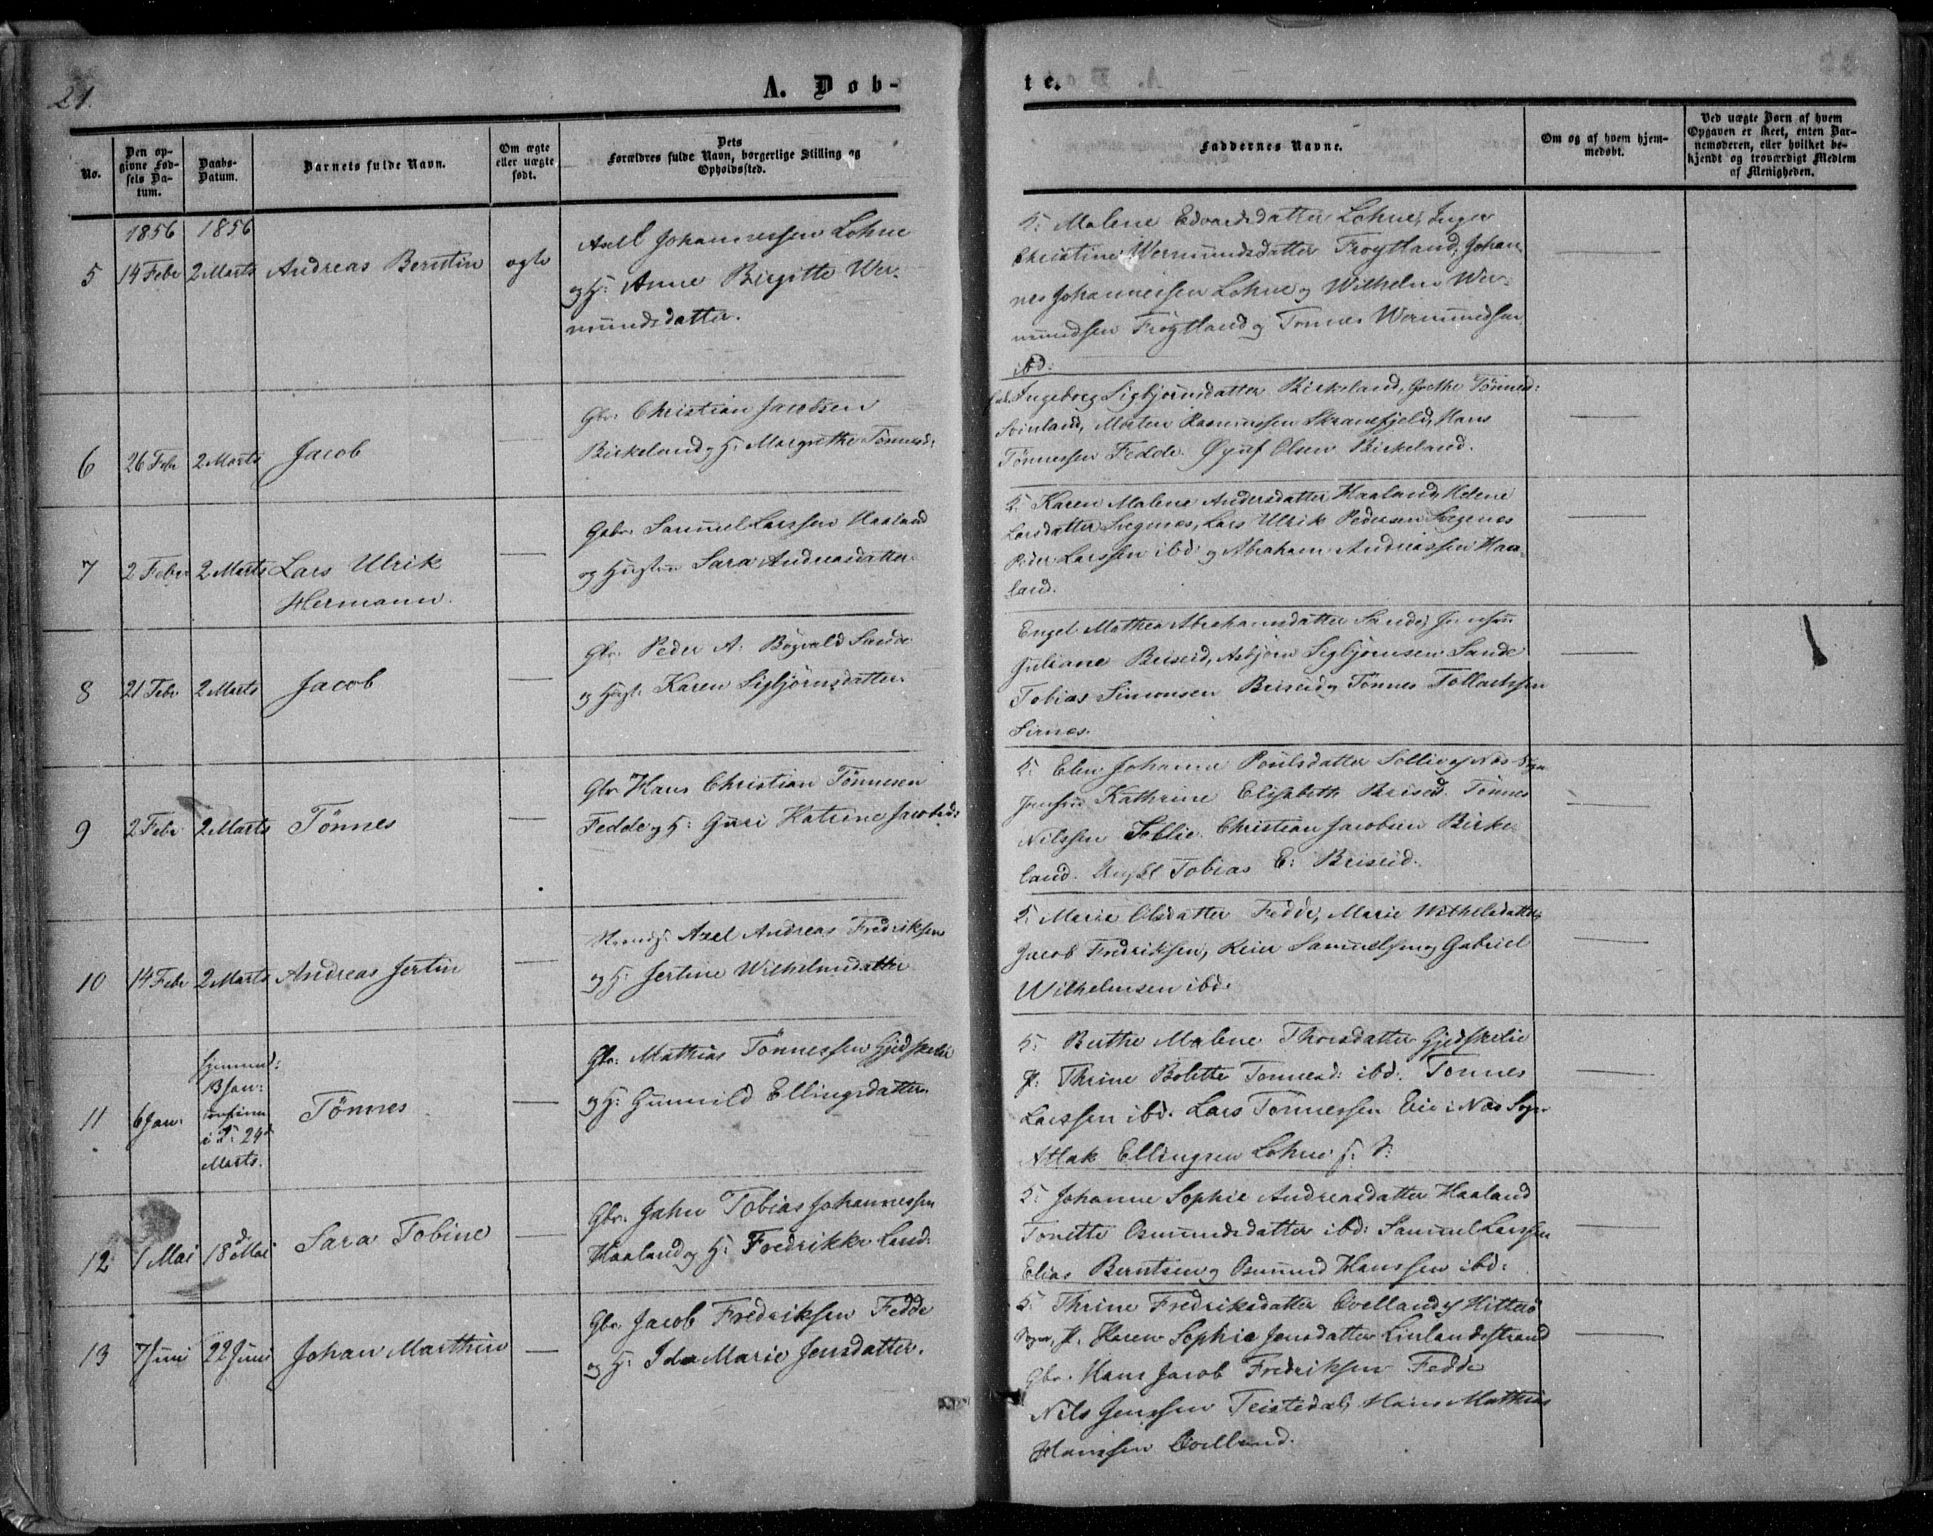 21.
A. Døb-
te.
No.
Den opgivne Fødsels Datum.
Daabs-Datum.
Barnets fulde Navn.
Om ægte eller uægte født.
Dets Forældres fulde Navn, borgerlige Stilling og Opholdssted.
Faddernes Navne.
Om og af hvem hjemmedøbt.
Ved uægte Børn af hvem Opgaven er skeet, enten Barnemoderen, eller hvilket bekjendt og troværdigt Medlem af Menigheden.
1856 1856
5 14 Febr 2 Marts Andreas Berntin ægte
Axel Johannessen Lohne
og H: Anne Birgitte Wer-
mundsdatter.
Malene Edvardsdatter Lohne, Inger
Christine Wermundsdatter Frøytland, Johan-
nes Johannessen Lohne og Wilhelm Wer-
mundsen Frøytland og Tønnes Wermundsen
ibd:
6 26 Febr 2 Marts Jacob
Gbr. Christian Jacobsen
Birkeland og H: Margrethe Tønnesd:
Ingeborg Sigbjørnsdatter Birkeland, Grethe Tønnesd:
Svinland, Morten Rasmussen Skransfjeld, Hans
Tønnessen Fedde. Øyuf Olsen Birkeland.
7 2 Febr 2 Marts Lars Ulrik
Hermann.
Gbr. Samuel Larssen Haaland
og Hustru Sara Andreasdatter
Karen Malene Andersdatter Haaland, Helene
Larsdatter Svegenes, Lars Ulrik Pedersen Svegenes
Peder Larssen ibd og Abraham Andreassen Haa-
land.
8 21 Febr. 2 Marts Jacob
Gbr. Peder A. Bøgvald Sande
og Hust. Karen Sigbjørnsdatter.
Engel Mathea Abrahamsdatter Sande, Jomfru
Juliane Briseid, Asbjørn Sigbjørnsen Sande
Tobias Simonsen Briseid og Tønnes Tollachsen
Sirnes.
9 2 Febr 2 Marts Tønnes
Gbr Hans Christian Tønnesen
Fedde og H: Guri Katrine Jacobsd:
Elen Johanne Poulsdatter Sollie af Næs Sogn
Jomfru Kathrine Elisabeth Briseid. Tønnes
Nilssen Sollie. Christian Jacobsen Birke-
land. Ungk. Tobias E: Briseid.
10 14 Febr 2 Marts Andreas Jertin
Axel Andreas Fredriksen
og H: Jertine Wilhelmsdatter
Marie Olsdatter Fedde, Marie Wilhelmsdatter
Jacob Fredriksen, Reier Samuelsen og Gabriel
Wilhelmsen ibd.
11 6 Jan. Hjemmed:
13 Jan:
confirm
i K: 24d
Marts.
Tønnes
Gbr: Mathias Tønnessen Gjedskelie
og H: Gunvild Ellingsdatter
Berthe Malene Thorsdatter Gjedskelie
P: Thrine Bolette Tønnesd: ibd. Tønnes
Larssen ibd. Lars Tønnessen Eie i Næs Sogn
Atlak Ellingsen Lohne
12 1 Mai 18d Mai Sara Tobine
Gbr. Jahn Tobias Johannessen
Haaland og H: Fredrikke Larsd:
Johanne Sophie Andreasdatter Haaland
Tonette Osmundsdatter ibd: Samuel Larssen
Elias Berntsen og Osmund Hanssen ibd:
13 7 Juni 22 Juni Johan Marthin
Gbr. Jacob Fredriksen Fedde
og H: Ida Marie Jensdatter.
Thrine Fredriksdatter Qvelland af Hitterø
Sogn, P. Karen Sophie Jensdatter Linlandsstrand
Gbr. Hans Jacob Fredriksen Fedde
Nils Jenssen Teistedal, Hans Mathias
Hanssen Qvelland.